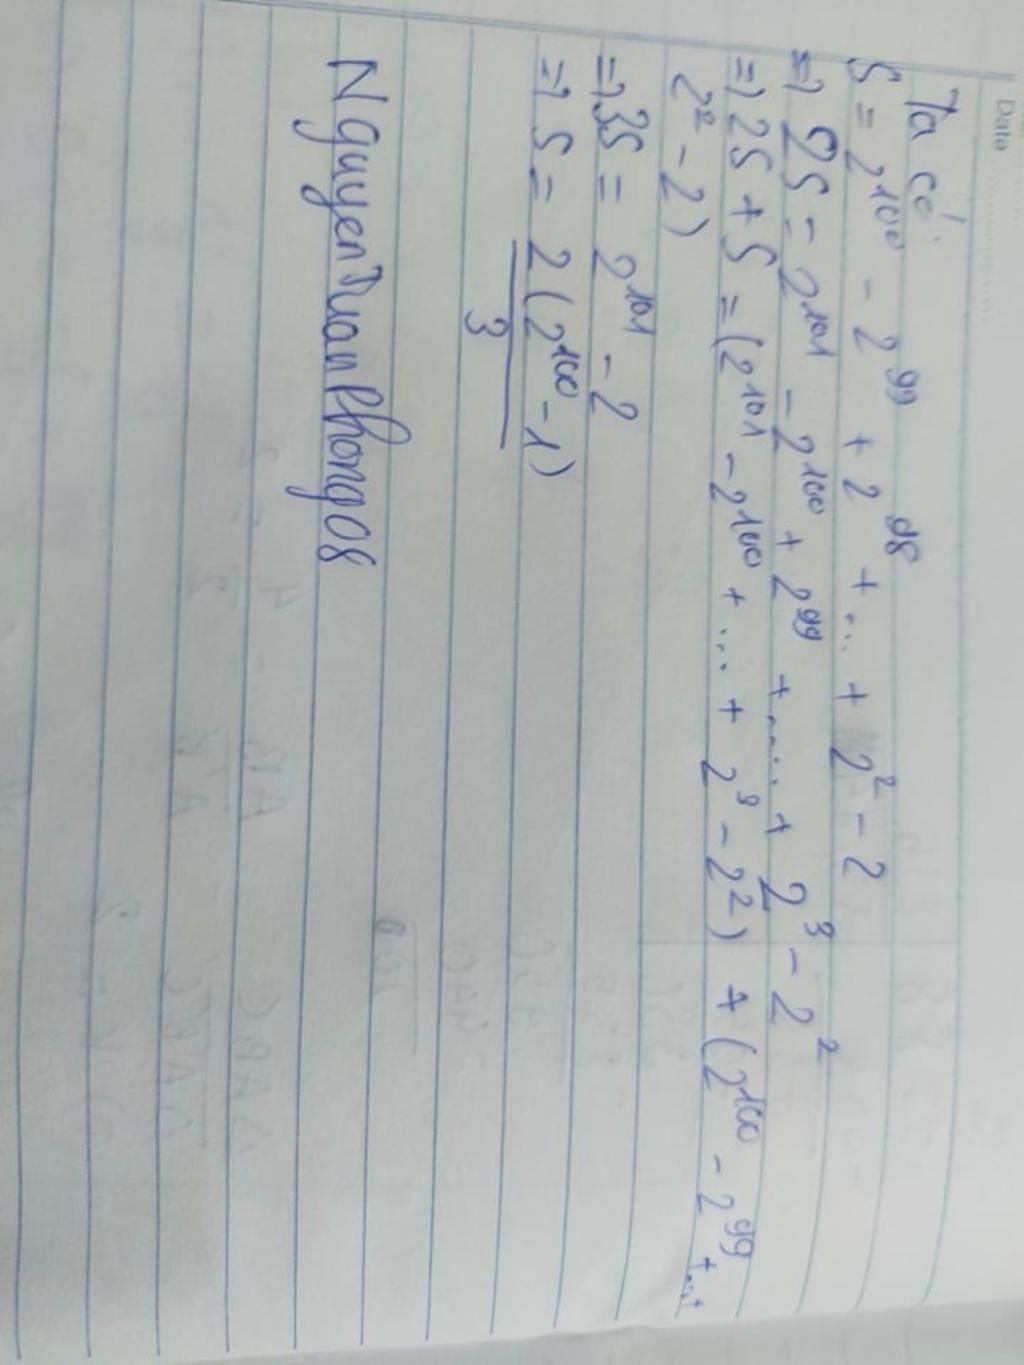 Date
Ta có:
S = 2^100 - 2^99 + 2^98 + ... + 2^2 - 2
=> 2S = 2^101 - 2^100 + 2^99 + ..... + 2^3 - 2^2
=> 2S + S = (2^101 - 2^100 + ... + 2^3 - 2^2) + (2^100 - 2^99 + ... +
2^2 - 2)
=> 3S = 2^101 - 2
=> S = 2(2^100 - 1)
3
NguyenTuanPhong08